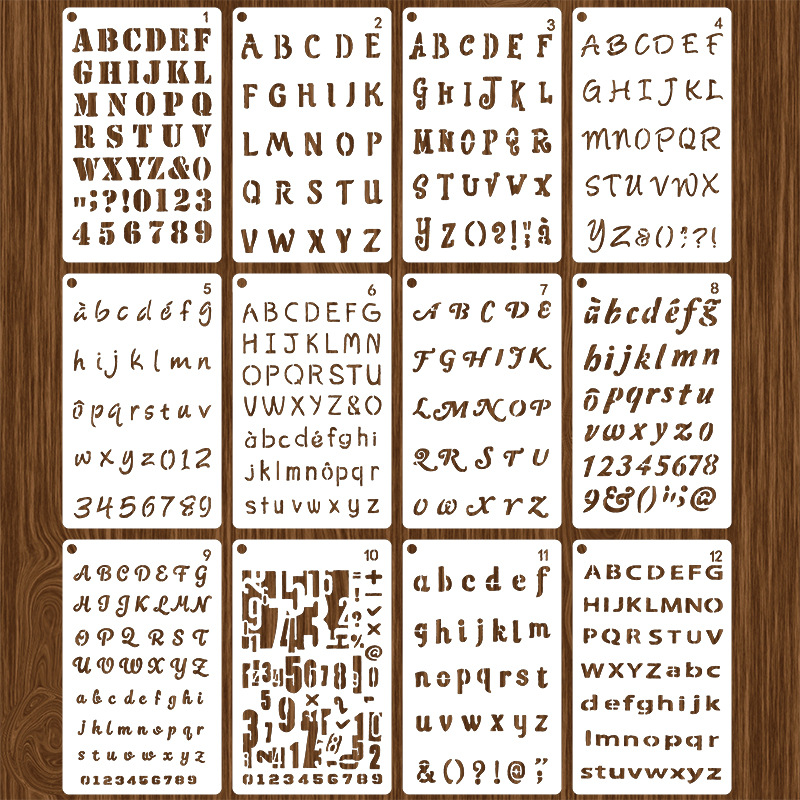 1
ABCDEF
GHIJKL
MNOPQ
RSTUV
WXYZ&()
";?!0123
456789
2
ABCDE
FGHIJK
LMNOP
QRSTU
VWXYZ
3
ABCDEF
GHIJKL
MNOPQR
STUVWX
YZ()?!";à
4
ABCDEF
GHIJKL
MNOPQR
STUVWX
YZ&();?!
5
àbcdéfg
hijklmn
ôpqrstuv
wxyz012
3456789
6
ABCDEFG
HIJKLMN
OPQRSTU
VWXYZ&()
àbcdéfghi
jklmnôpqr
stuvwxyz
7
ABCDE
FGHIJK
LMNOP
QRSTU
VWXYZ
8
àbcdéfg
hijklmn
ôpqrstu
vwxyz0
12345678
9&()";@
9
ABCDEFG
HIJKLMN
OPQRST
UVWXYZ
abcdefghi
jklmnopqr
stuvwxyz
0123456789
10
0123456789
11
abcdef
ghijklm
nopqrst
uvwxyz
&()?!@;
12
ABCDEFG
HIJKLMNO
PQRSTUV
WXYZabc
defghijk
lmnopqr
stuvwxyz